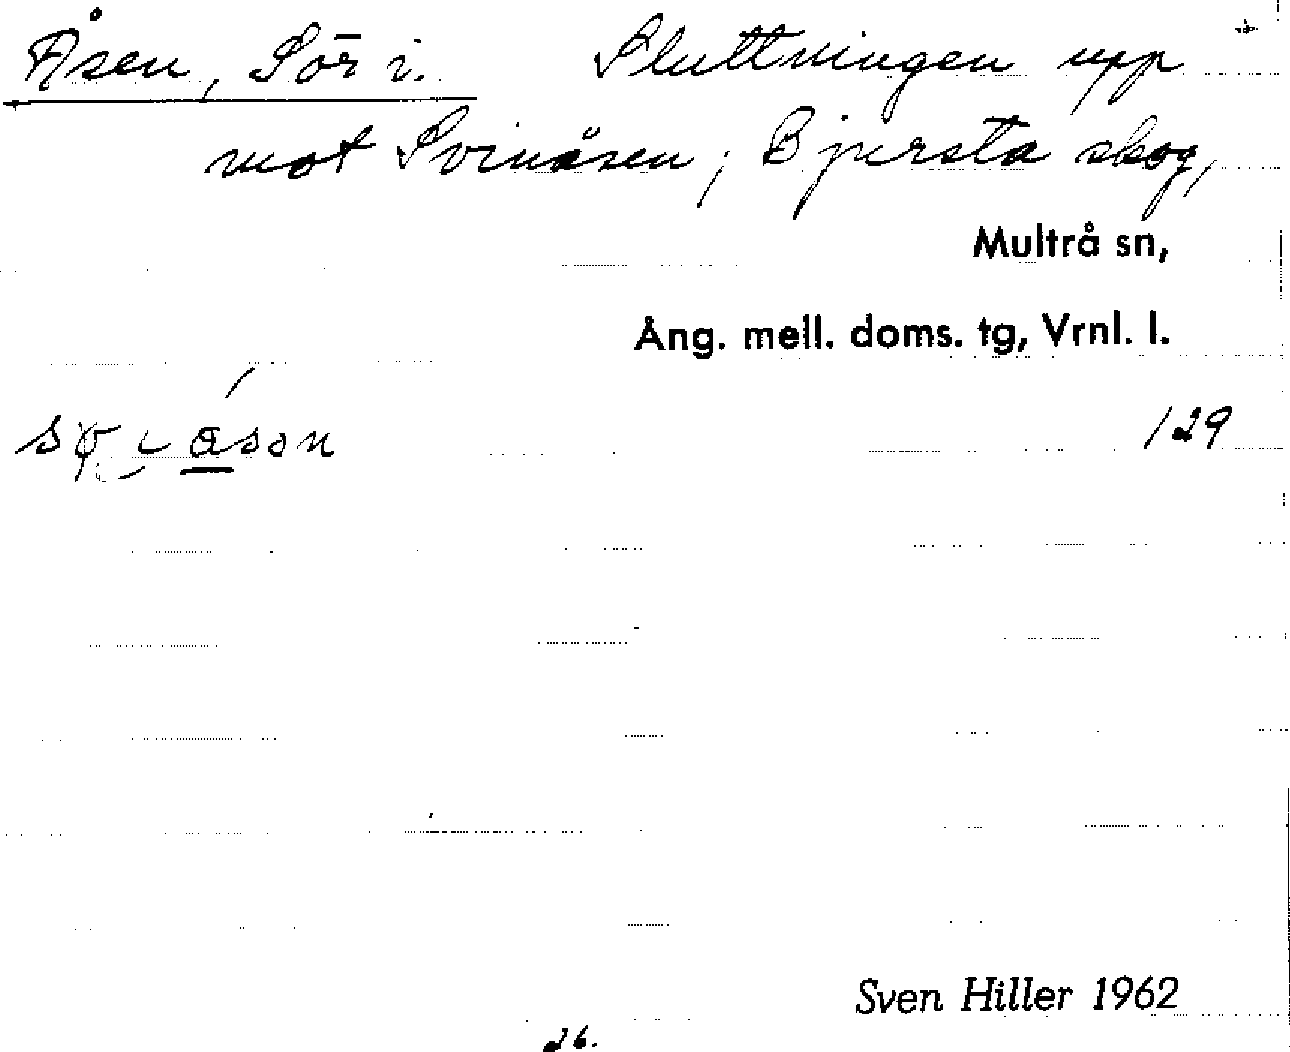 Åsen, Sör i. Sluttningen upp
mot Svinåsen; Bjursta skog,
Multrå sn,
Ång. mell. doms. tg, Vrnl. l.
129
Sven Hiller 1962
26.